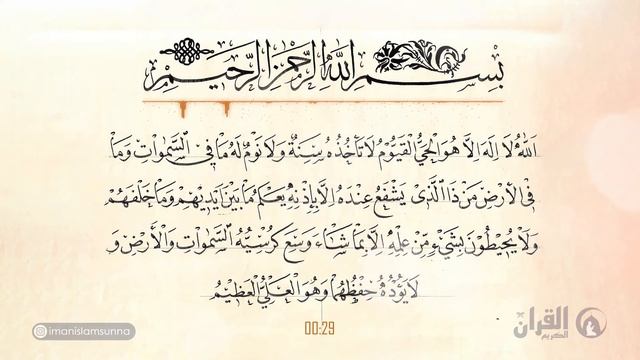 بِسْمِ اللهِ الرَّحْمٰنِ الرَّحِيْمِ
اَللهُ لَا اِلٰهَ اِلَّا هُوَ الْحَيُّ الْقَيُّوْمُ لَا تَأْخُذُهُ سِنَةٌ وَلَا نَوْمٌ لَهُ مَا فِي السَّمٰوَاتِ وَمَا
فِي الْأَرْضِ مَنْ ذَا الَّذِيْ يَشْفَعُ عِنْدَهُ اِلَّا بِإِذْنِهِ يَعْلَمُ مَا بَيْنَ اَيْدِيْهِمْ وَمَا خَلْفَهُمْ
وَلَا يُحِيْطُوْنَ بِشَيْءٍ مِنْ عِلْمِهِ اِلَّا بِمَا شَاءَ وَسِعَ كُرْسِيُّهُ السَّمٰوَاتِ وَالْأَرْضَ وَ
لَا يَؤُدُهُ حِفْظُهُمَا وَهُوَ الْعَلِيُّ الْعَظِيْمُ
00:29
imanislamsunna
القرآن
الكريم